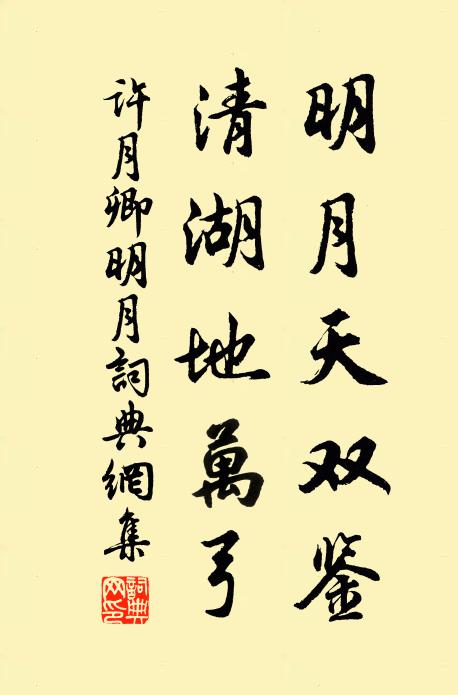 明月天双鉴
清湖地萬弓
许月卿明月詞典網集
詞典
网印